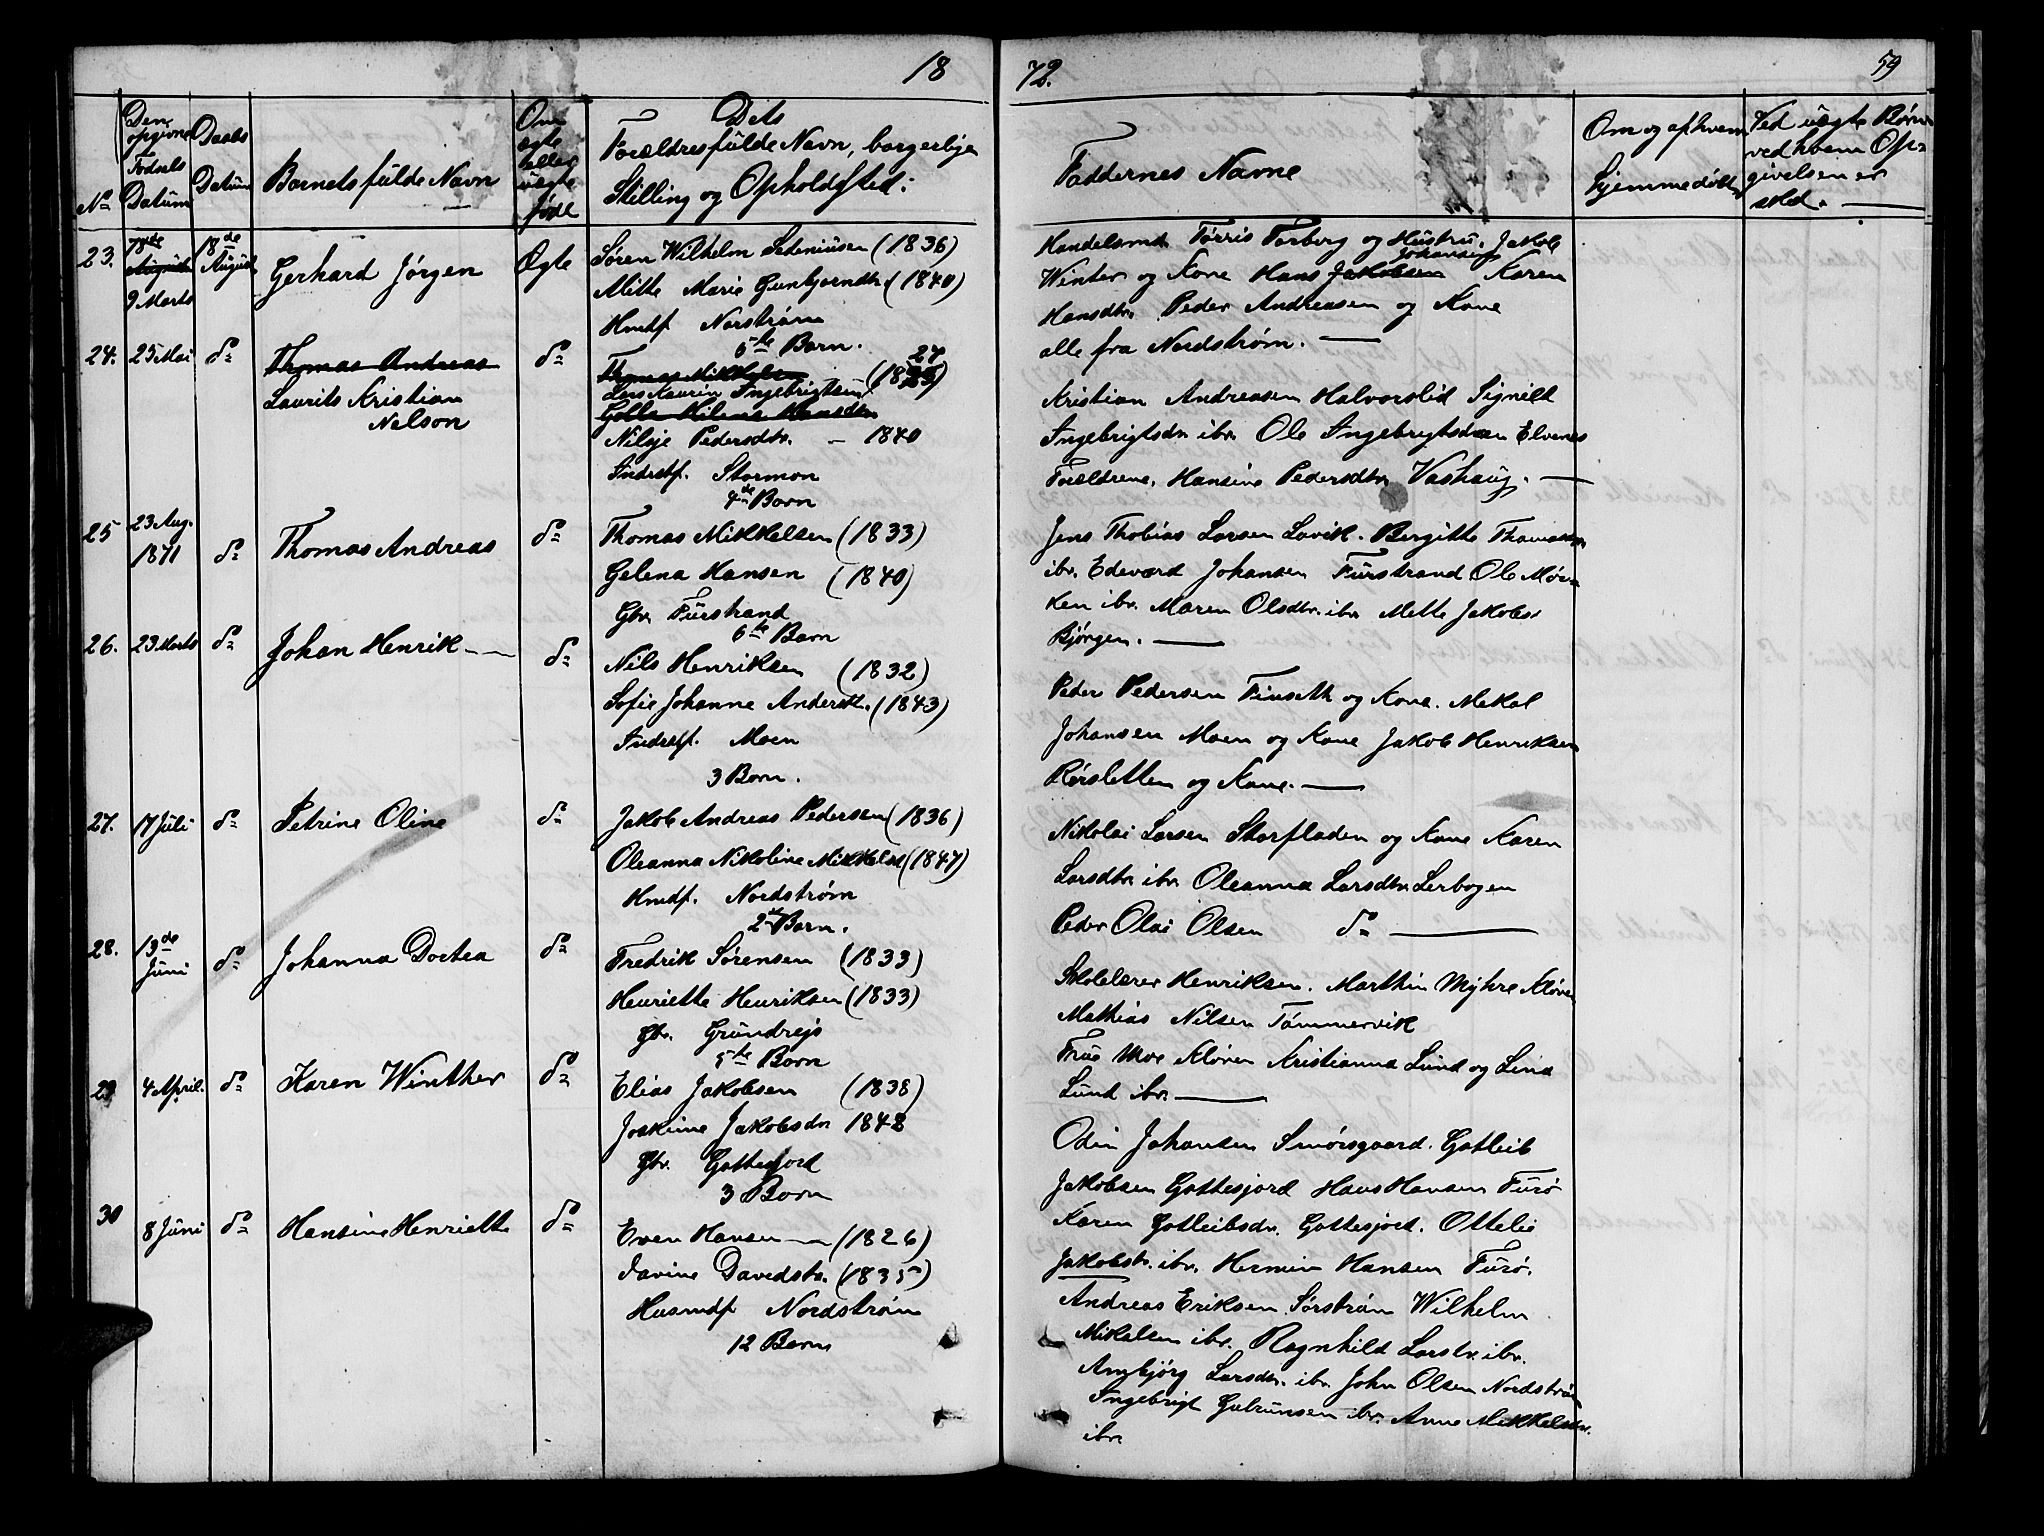 18
72.
59
No
Den opgivne Fødsels Datum
Daabs Datum
Barnets fulde Navn
Om ægte eller uægte født
Dets
Forældres fulde Navn, borgerlige
Stilling og Opholdssted:
Faddernes Navne
Om og af hvem
hjemmedøbt
Ved uægte Børn
ved hvem Op-
givelsen er
sked.
23.
18de August
9 Marts
18de August
Gerhard Jørgen
Ægte
Søren Wilhelm Seteniusen (1836)
Mitte Marie Gunbjørndtr (1840)
Hmdf. Norstrøm
5te Barn.
Handelsmd. Tørris Forberg og Hustru. Jakob
Winter og Kone Hans Jakobsen Johansen Karen
Hansdtr. Peder Andreasen og Kone
alle fra Nordstrøm.
24.
25 Mai
do
Thomas Andreas
Laurits Kristian
Nelson
do
Thomas Mikkelsen
Lars Laurin Ingebrigtsen (1827)
Nilsje Pedersdtr. - 1840
Indrstf. Stormon
4de Barn
Kristian Andreasen Halvorslid Signild
Ingebrigtsdr ibr. Ole Ingebrigtsden Elvenes
Forældrene, Hansine Pedersdtr Vashaug.
25
23 Aug.
1871
do
Thomas Andreas
do
Thomas Mikkelsen (1833)
Gelena Hansen (1840)
Gbr. Furstrand
6te Barn
Jens Thobias Larsen Lavik. Bergitte Thomasdtr
ibr. Edevard Johansen Furstrand Ole Mør-
ken ibr. Maren Olsdtr. ibr Mette Jakobsr
Bjørgen.
26.
23 Marts
do
Johan Henrik
do
Nils Henriksen (1832)
Sofie Johanna Andersdtr. (1843)
Indrstf. Moen
3 Barn.
Peder Pedersen Finseth og Kone. Mekal
Johansen Moen og Kone Jakob Henriksen
Rørsletten og Kone.
27.
17 Juli
do
Petrine Oline
do
Jakob Andreas Pedersen (1836)
Oleanna Nikoline Mikkelsd (1847)
Hmdf. Nordstrøm
2d Barn.
Nikolai Larsen Storfladen og Kone Karen
Larsdtr ibr. Oleanna Larsdtr. Lerbogen
Peder Olai Olsen do
28.
13de Juni
do
Johanna Dortea
do
Fredrik Sørensen (1833)
Henriette Henriksen (1833)
Gbr. Grundrejs
5te Barn
Skolelærer Henriksen. Marthin Myhre Kløven
Mathias Nilsen Tømmervik
Frue Moe Kløven Kristianna Lund og Lina
Lund ibr.
29
4 April.
do
Karen Winther
do
Elias Jakobsen (1838)
Joakime Jakobsdr 1842
Gbr. Gottesjord
3 Barn
Odin Johansen Smørsgaard. Gotleib
Jakobsen Gottesjord Hans Hansen Furø
Karen Gotleibsdr. Gottesjord. Ottelie
Jakobstr. ibr. Hermine Hansen Furø.
30
8 Juni
do
Hansine Henriette
do
Even Hansen (1826)
Javine Davidstr. (1835)
Husmdf Nordstrøm
12 Barn
Andreas Eriksen Sørstrøm Wilhelm
Mikalsen ibr. Ragnhild Larstr. ibr.
Arnbjørg Larsdtr. ibr. John Olsen Nordstrøm
Ingebrigt Gubrunsen ibr. Anne Mikkelsdtr.
ibr.